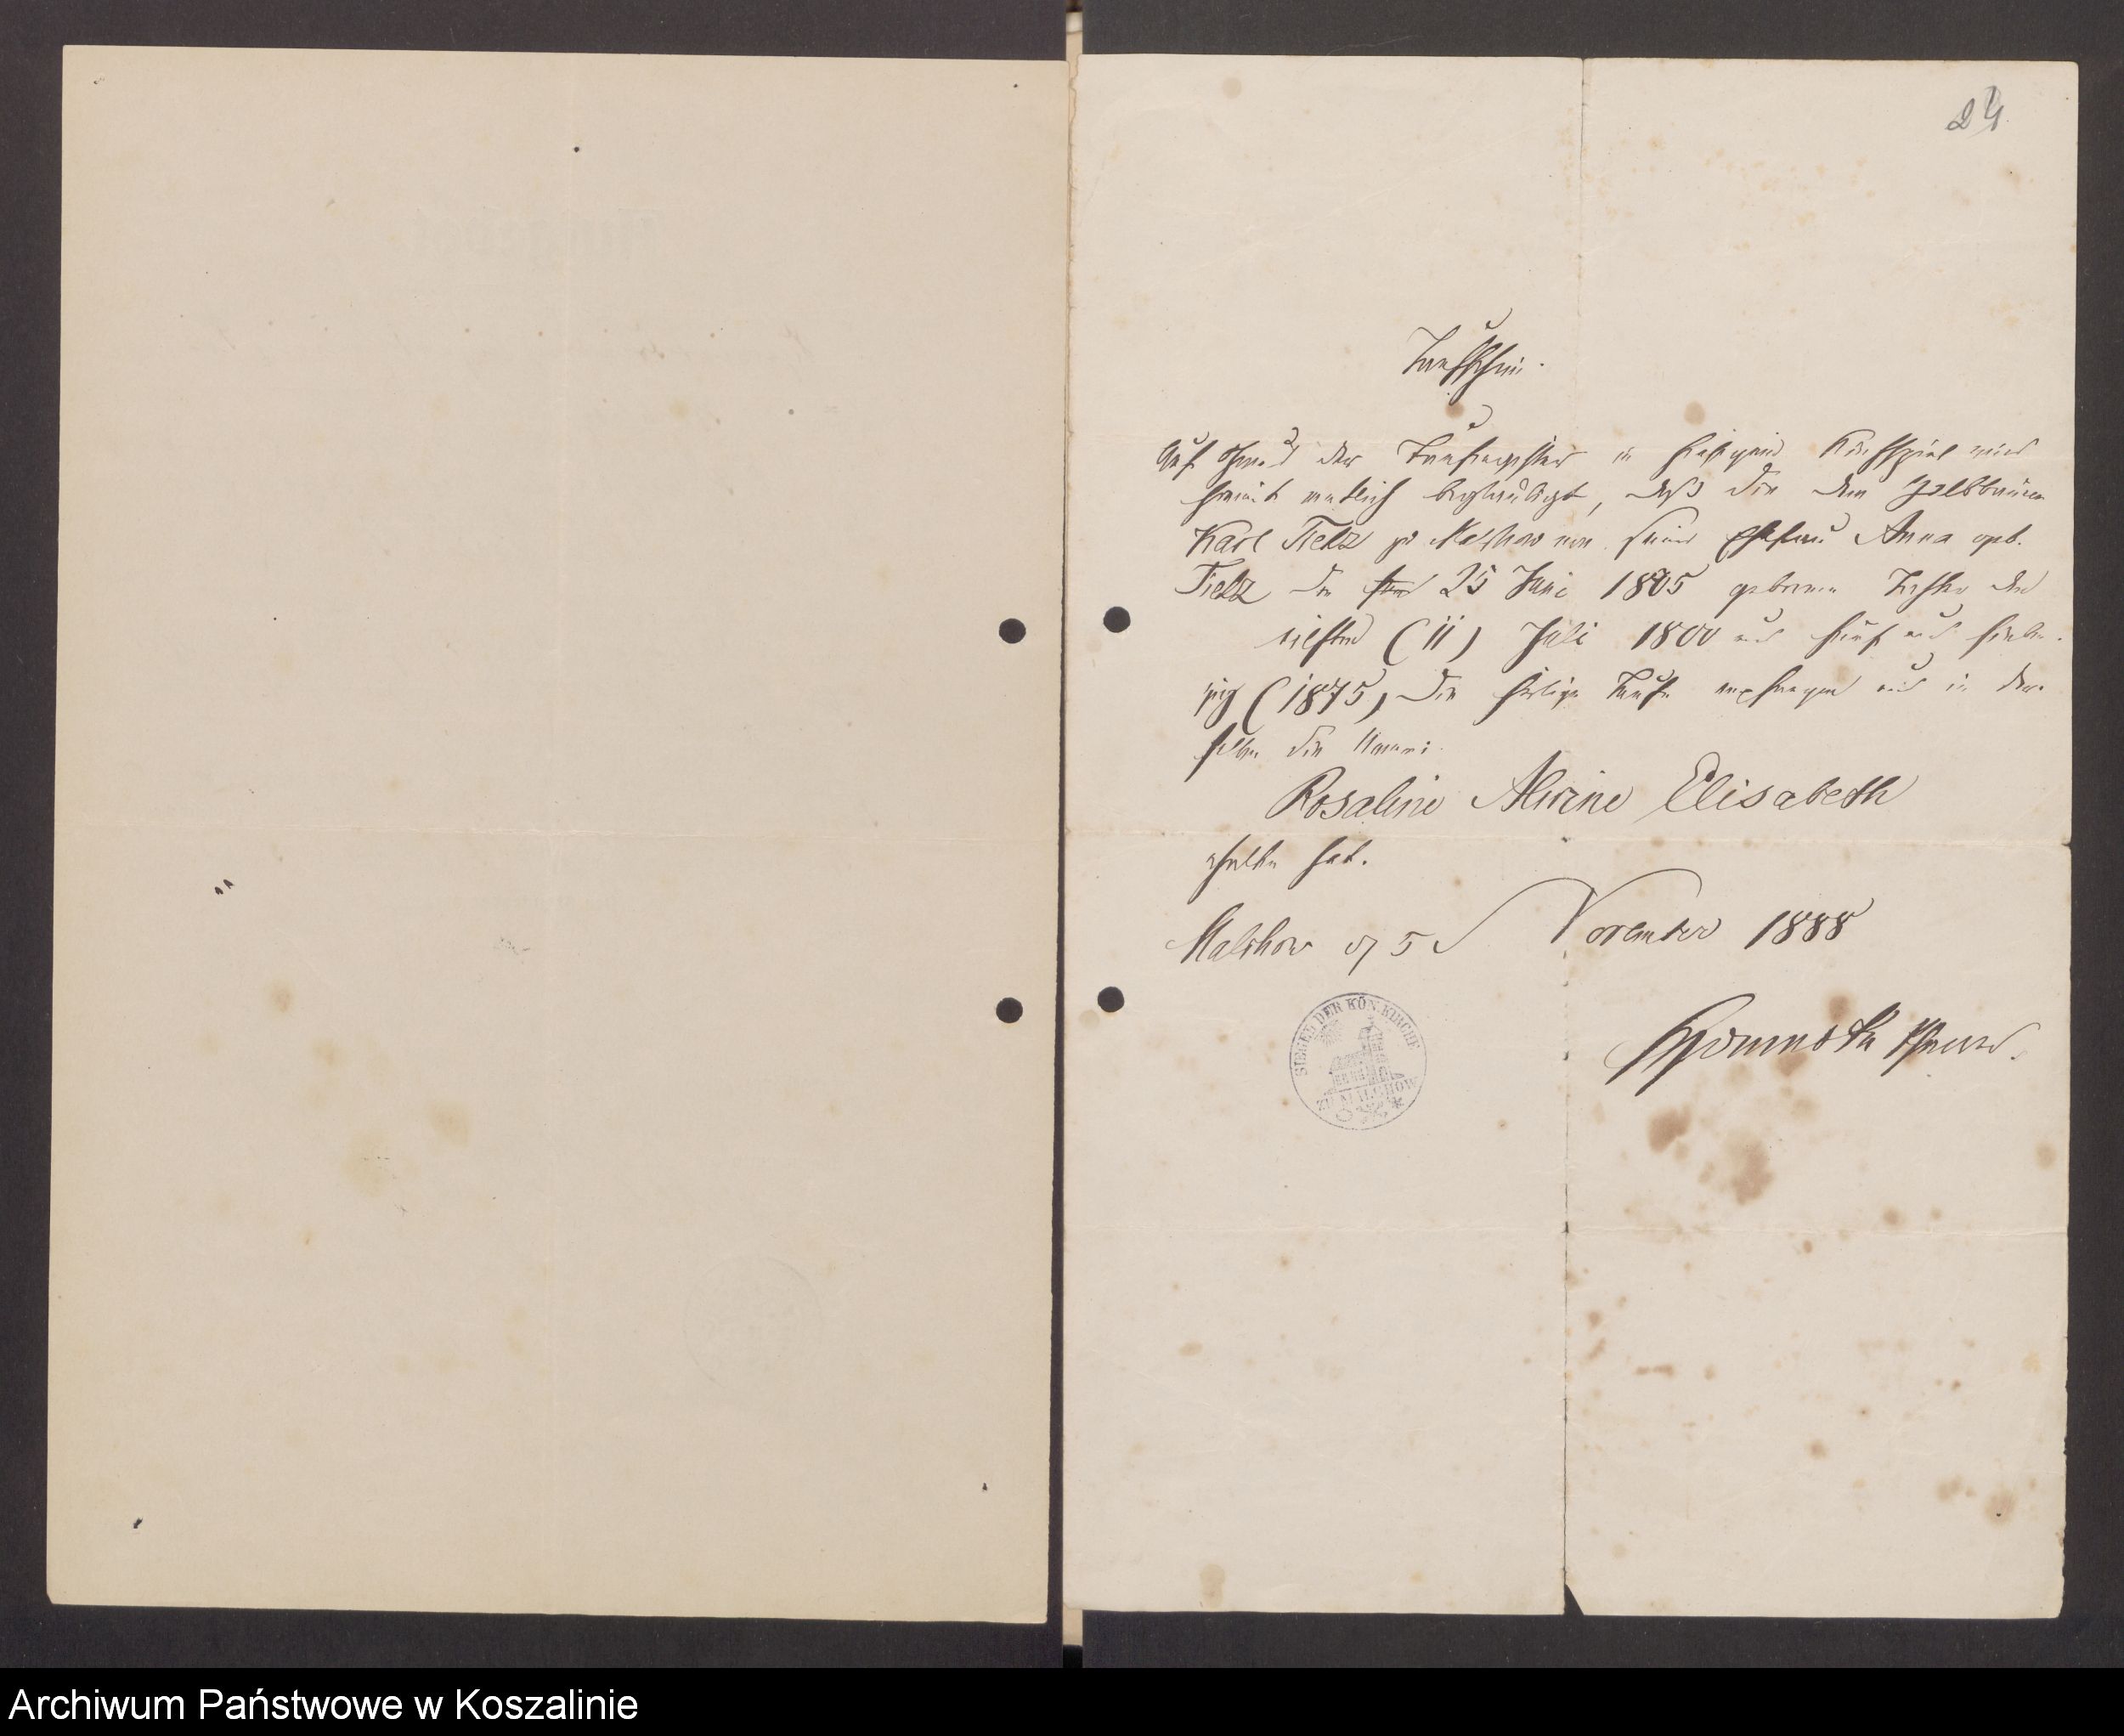 24
Taufschein.
Auf Grund der Taufregister in hiesigem Kirchspiel wird
hiermit amtlich beglaubigt, daß die dem Halbbauer
Karl Tietz zu Malchow von seiner Ehefrau Anna geb.
Tietz den 25 Juni 1875 geborene Tochter den
eilften (11) Juli 1800 und fünf und sieben-
zig (1875) die heilige Taufe empfangen und in der-
selben die Namen:
Rosaline Alwine Elisabeth
erhalten hat.
Malchow d 5 November 1888
Pfarrer.
SIEGEL DER KÖN. KIRCHE
ZU MALCHOW
Archiwum Państwowe w Koszalinie